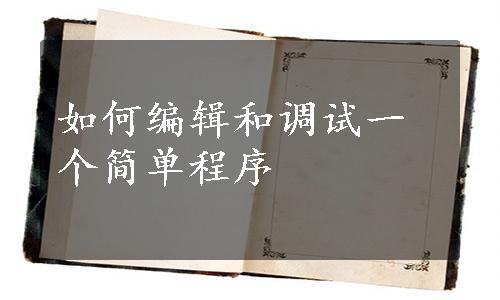 如何编辑和调试一
个简单程序